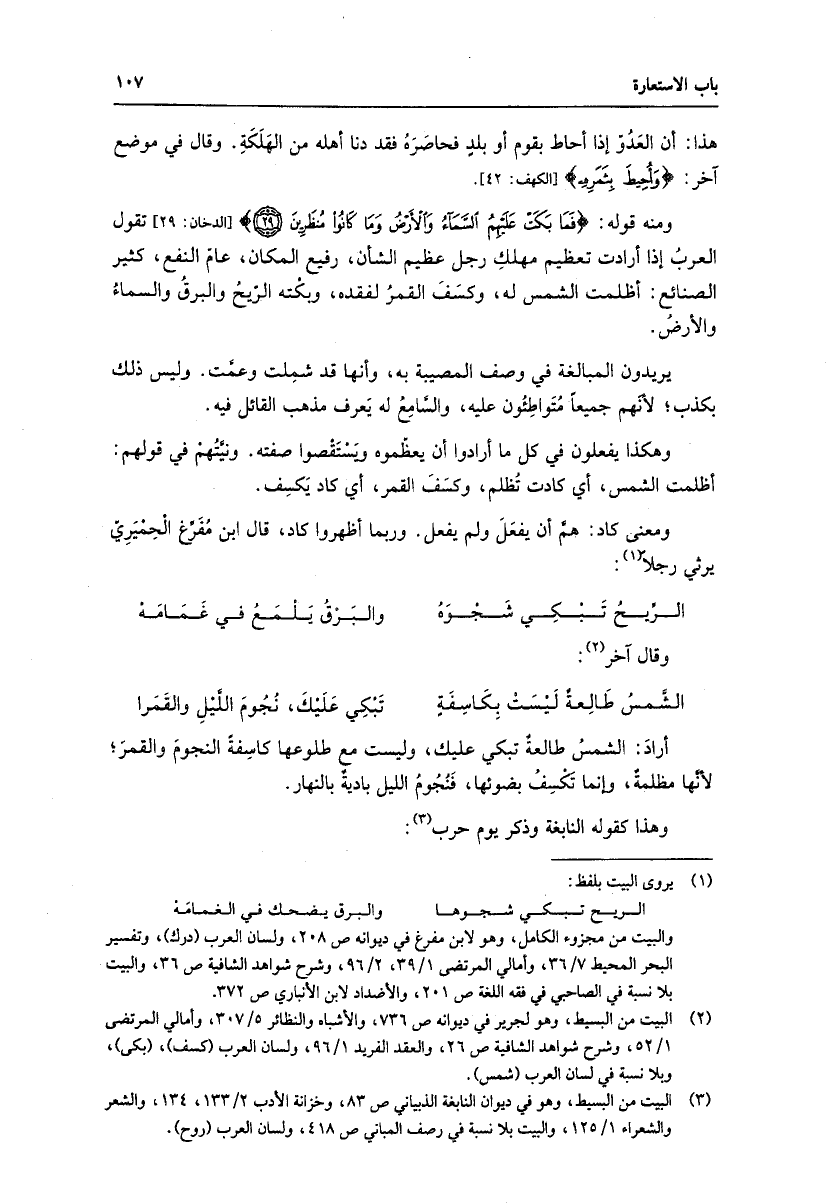 باب الاستعارة ١٠٧
هذا: أن العَدُوّ إذا أحاط بقوم أو بلدٍ فحاصَرَهُ فقد دنا أهله من الهَلَكَةِ. وقال في موضع
آخر: ﴿وَأُحِيطَ بِثَمَرِهِ﴾ [الكهف: ٤٢].
ومنه قوله: ﴿فَمَا بَكَتْ عَلَيْهِمُ السَّمَآءُ وَالْأَرْضُ وَمَا كَانُوا مُنظَرِينَ ﴿٢٩﴾﴾ [الدخان: ٢٩] تقول
العربُ إذا أرادت تعظيم مهلكِ رجل عظيم الشأن، رفيع المكان، عامّ النفع، كثير
الصنائع: أظلمت الشمس له، وكسَفَ القمرُ لفقده، وبكْته الرّيحُ والبرقُ والسماءُ
والأرضُ.
يريدون المبالغة في وصف المصيبة به، وأنها قد شمِلت وعمَّت. وليس ذلك
بكذب؛ لأنّهم جميعاً مُتَواطِئُون عليه، والسَّامِعُ له يَعرف مذهب القائل فيه.
وهكذا يفعلون في كل ما أرادوا أن يعظّموه ويَسْتَقْصوا صفته. ونيَّتُهمْ في قولهم:
أظلمت الشمس، أي كادت تُظلم، وكسَفَ القمر، أي كاد يَكسِف.
ومعنى كاد: همَّ أن يفعَلَ ولم يفعل. وربما أظهروا كاد، قال ابن مُفَرِّغ الْحِمْيَرِيّ
يرثي رجلاً(١):
الــرِّيــحُ تَــبْــكِــي شَــجْــوَهُ والــبَــرْقُ يَــلْــمَــعُ فــي غَــمَــامَــهْ
وقال آخر(٢):
الشَّمسُ طَالِعةٌ لَيْسَتْ بِكَاسِفَةٍ تَبْكِي عَلَيْكَ، نُجُومَ اللَّيْلِ والقَمَرا
أرادَ: الشمسُ طالعةٌ تبكي عليك، وليست مع طلوعها كاسِفةً النجومَ والقمرَ؛
لأنَّها مظلمةٌ، وإنما تَكْسِفُ بضوئها، فَنُجُومُ الليل باديةٌ بالنهار.
وهذا كقوله النابغة وذكر يوم حرب(٣):
(١) يروى البيت بلفظ:
الـريـح تـبـكـي شـجـوهـا والـبـرق يـضـحـك فـي الـغـمـامـة
والبيت من مجزوء الكامل، وهو لابن مفرغ في ديوانه ص ٢٠٨، ولسان العرب (درك)، وتفسير
البحر المحيط ٣٦/٧، وأمالي المرتضى ٣٩/١، ٩٦/٢، وشرح شواهد الشافية ص ٣٦، والبيت
بلا نسبة في الصاحبي في فقه اللغة ص ٢٠١، والأضداد لابن الأنباري ص ٣٧٢.
(٢) البيت من البسيط، وهو لجرير في ديوانه ص ٧٣٦، والأشباه والنظائر ٣٠٧/٥، وأمالي المرتضى
٥٢/١، وشرح شواهد الشافية ص ٢٦، والعقد الفريد ٩٦/١، ولسان العرب (كسف)، (بكى)،
وبلا نسبة في لسان العرب (شمس).
(٣) البيت من البسيط، وهو في ديوان النابغة الذبياني ص ٨٣، وخزانة الأدب ١٣٣/٢، ١٣٤، والشعر
والشعراء ١٢٥/١، والبيت بلا نسبة في رصف المباني ص ٤١٨، ولسان العرب (روح).